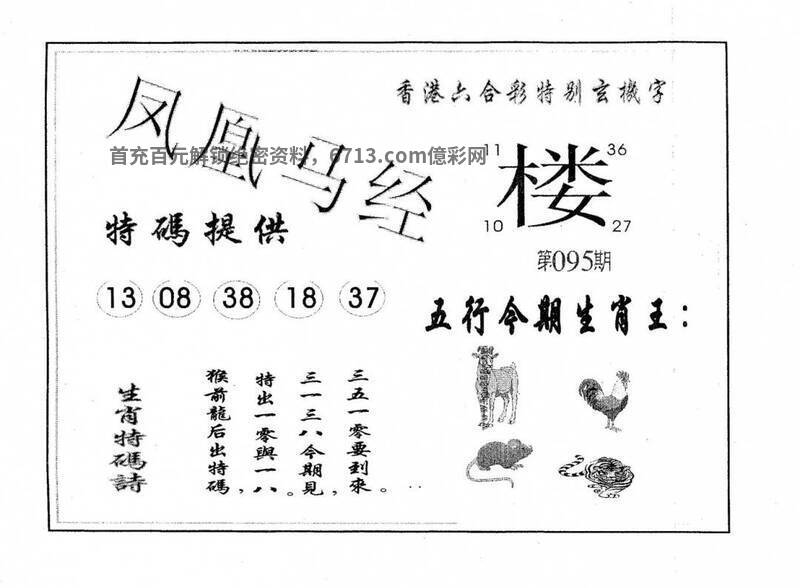 香港六合彩特别玄機字
凤凰马经
首充百元解锁绝密资料，6713.com億彩网
11 36
楼
10 27
第095期
特碼提供
13 08 38 18 37
五行今期生肖王：
生肖特碼詩
猴前龍后出特碼，
特出一零與一八。
三一三八今期見，
三五一零要到來。